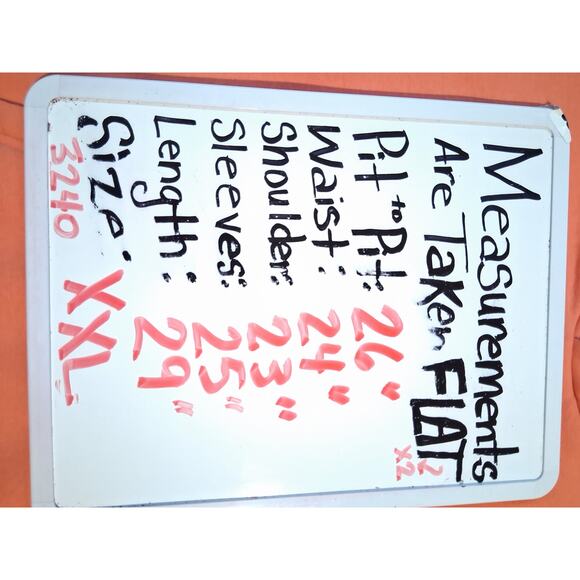 Measurements
Are Taken FLAT
x2
Pit to Pit: 26"
Waist: 24"
Shoulder: 23"
Sleeves: 25"
Length: 29"
Size: XXL
3240